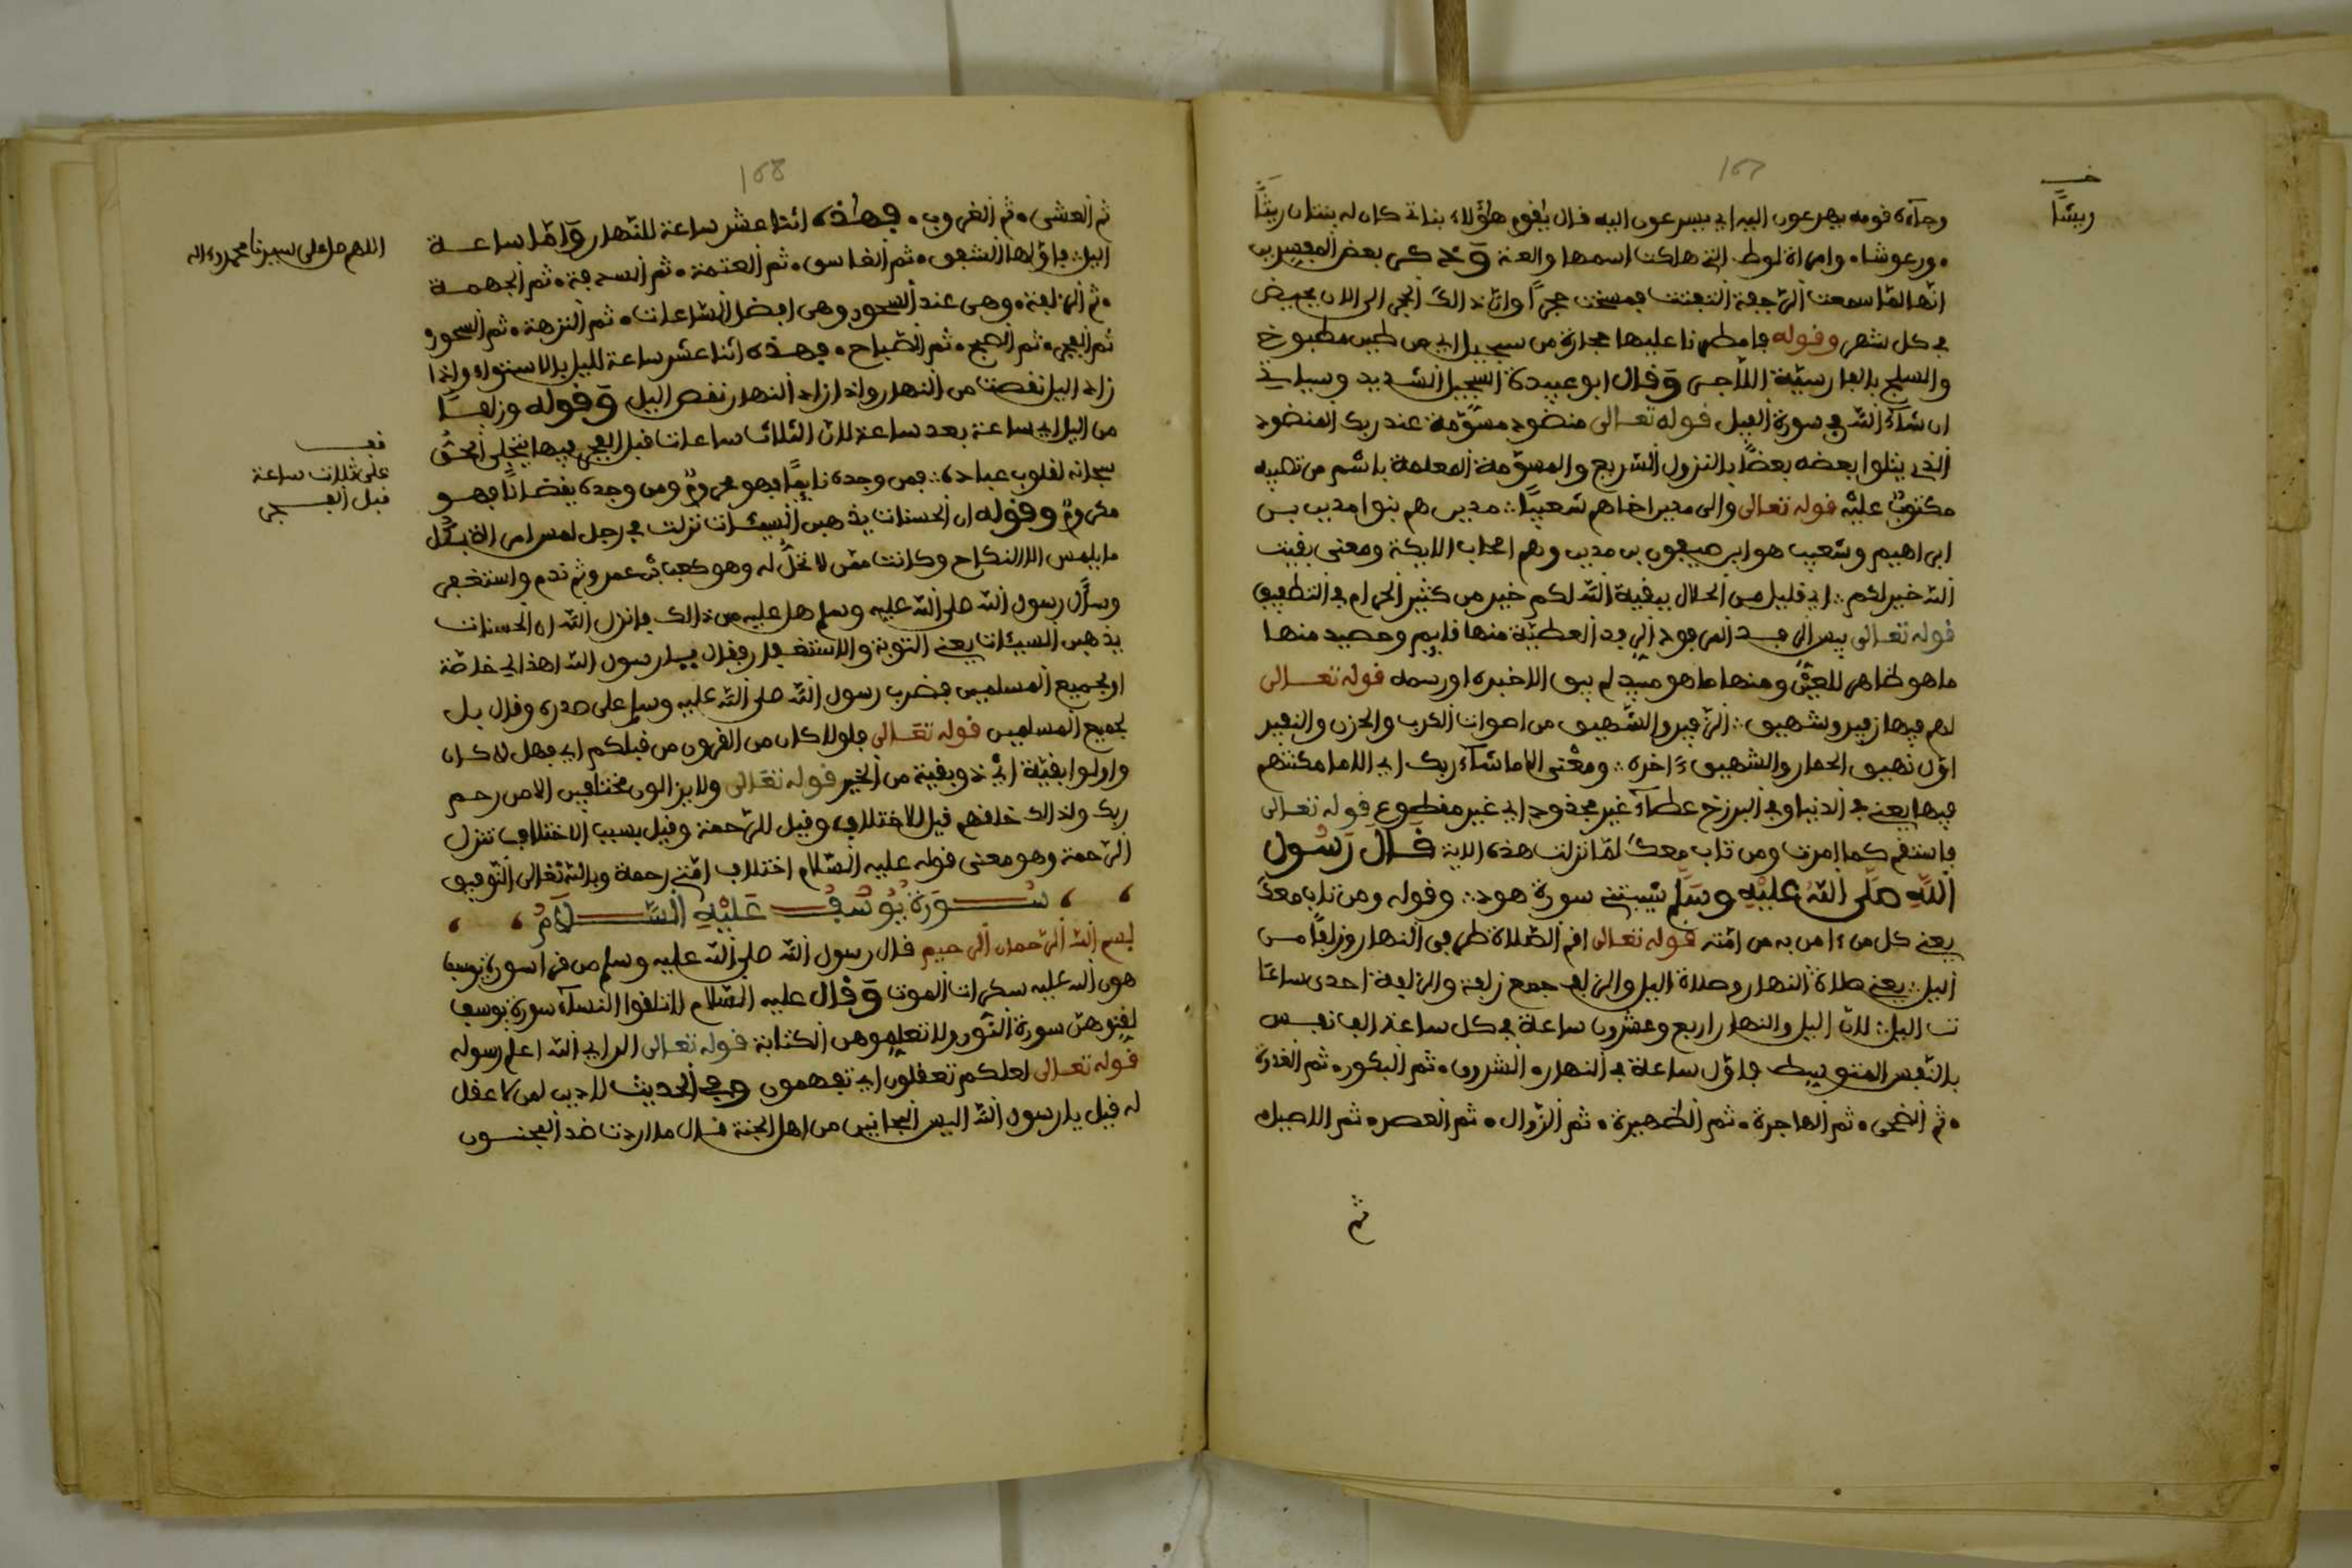 167
خـ
ريشًا
وجآءه فومه يهرعون اليه اي يسرعون اليه فال يٰفوم هٰؤلاء بناتى كان له بنتان ريثًا
ورعوشا وامراة لوط التى هلكت اسمها والعة وفد كر بعض المفسرين
انها لمّا سمعت الرّجفة التفتت فمسخت حجرًا وانّ ذالك الحجر الى الان يحيض
في كل شهر وفوله فامطرنا عليها حجارة من سجيل اي من طين مطبوخ
والسلج بالفارسيّة اللّاجر وفال ابو عبيدة السجيل الشديد وسياتي
ان شآء الله في سورة الفيل فوله تعالى منضود مسوّمة عند ربك المنضود
الذي يتلوا بعضه بعضًا بالنزول السّريع والمسوّمة المعلمة باسم من تصيبه
مكتوبٌ عليه فوله تعالى والى مدين اخاهم شعيبًا مدين هم بنوا مدين بن
ابراهيم وشعيب هو ابن صيفون بن مدين وهم اصحاب الايكة ومعنى بفيت
الله خير لكم اي فليل من الحلال يبفيه الله لكم خير من كثير الحرام في التطفيف
فوله تعالى بيس الرفد المرفود الرفد العطيّة منها فايم وحصيد منها
ما هو ظاهر للعين ومنها ما هو مبيد لم يبق الا خبره او رسمه فوله تعالى
لهم فيها زفير وشهيق الزّفير والشّهيق من اصوات الكرب والحزن والزفير
اوّل نهيق الحمار والشهيق ءاخره ومعنى الا ما شآء ربك اي الا ما مكثهم
فيها يعني في الدنيا وفي البرزخ عطآءً غير مجذوذ اي غير مفطوع فوله تعالى
فاستفم كما امرت ومن تاب معك لمّا نزلت هذه الاية فال رسول
الله صلّى الله عليه وسلّم شيبتني سورة هود وفوله ومن تاب معك
يعني كل من ءامن به من امّته فوله تعالى افم الصّلاة طرفي النهار وزلفًا من
اليل يعني صلاة النهار وصلاة اليل والزلف جمع زلفة والزلفة احدى ساعا
ت اليل لانّ اليل والنهار اربع وعشرون ساعة في كل ساعة الف نفس
بالنّفس المتوسط فاوّل ساعة في النهار الشروق ثم البكور ثم الغدوة
ثم الضحى ثم الهاجرة ثم الظهيرة ثم الزّوال ثم العصر ثم الاصيل
ثم
168
ثم العشي ثم الغروب فهٰذه اثنا عشر ساعة للنّهار وامّا ساعة
اليل فاوّلها الشفق ثم الغاسق ثم العتمة ثم السدفة ثم الجهمة
ثم الزلفة وهي عند السحور وهي افضل السّاعات ثم النزهة ثم السحور
ثم الفجر ثم الصبح ثم الصّباح فهذه اثنا عشر ساعة لليل بالاستواء واذا
زاد اليل نفصت من النهار واذا زاد النهار نفص اليل وفوله وزلفًا
من اليل اي ساعة بعد ساعة لانّ الثلاث ساعات فبل الفجر فيها يتجلى الحقّ
سبحانه لفلوب عباده فمن وجده نايمًا فهو محروم ومن وجده يفضانًا فهو
مكروم وفوله ان الحسنات يذهبن السيئات نزلت في رجل لمس امراة بكل
ما يلمس الا النكاح وكانت ممّن لا تحلّ له وهو كعب بن عمرو ثم ندم واستغفر
وسأل رسول الله صلى الله عليه وسلم هل عليه من ذالك فانزل الله ان الحسنات
يذهبن السيئات يعني التوبة والاستغفار ففال يا رسول الله اهذا لي خاصّة
او لجميع المسلمين فضرب رسول الله صلى الله عليه وسلم على صدره وفال بل
لجميع المسلمين فوله تعالى فلولا كان من الفرون من فبلكم اي فهل لا كان
واولوا بفيّة اي ذو بفية من الخير فوله تعالى ولا يزالون مختلفين الا من رحم
ربك ولذالك خلفهم فيل للاختلاف وفيل للرّحمة وفيل بسبب الاختلاف تنزل
الرّحمة وهو معنى فوله عليه السّلام اختلاف امّتي رحمة وبالله تعالى التوفيق
سورة يوسف عليه السّلام
بسم الله الرّحمان الرحيم فال رسول الله صلى الله عليه وسلم من فرا سورة يوسف
هون الله عليه سكرات الموت وفال عليه السّلام لا تلفوا النسآء سورة يوسف
لفنوهنّ سورة النّور ولا تعلموهن الكتابة فوله تعالى الر اي الله اعلم رسوله
فوله تعالى لعلكم تعفلون اي تفهمون وفي الحديث لا دين لمن لا عفل
له فيل يا رسول الله اليس المجانين من اهل الجنة فال ما اردت ضد المجنون
اللهم صل على سيدنا محمد وءاله
فف
على ثلاث ساعة
فبل الفجر